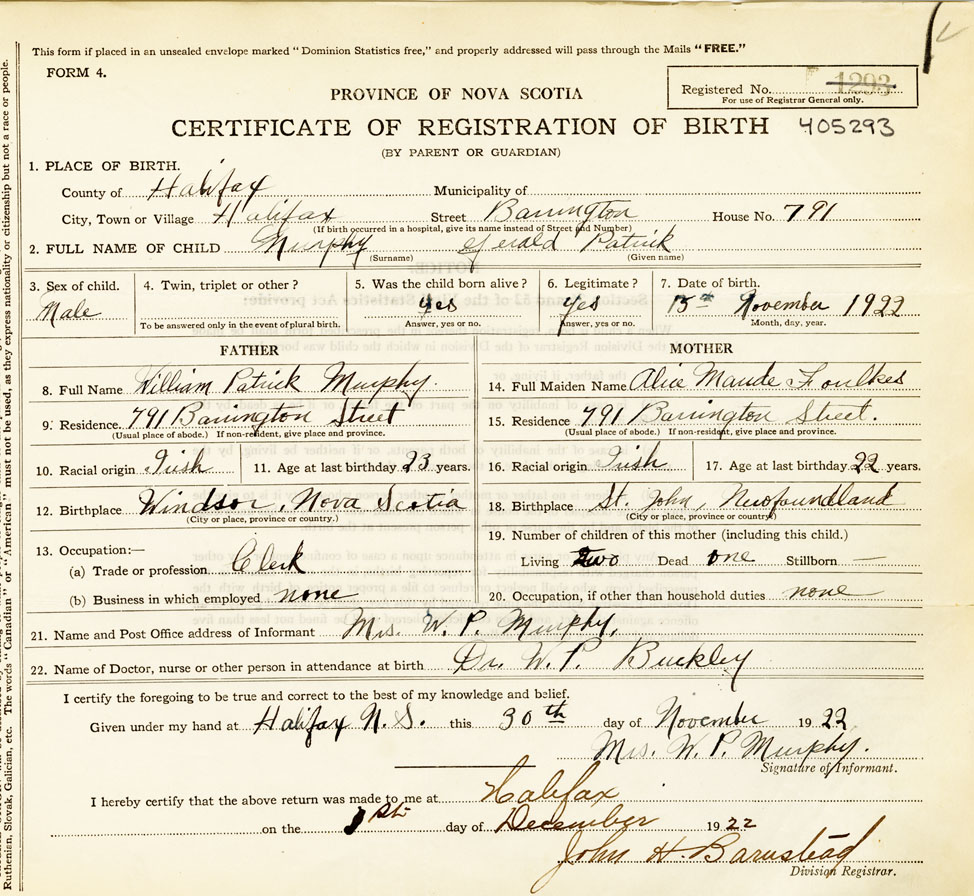 This form if placed in an unsealed envelope marked "Dominion Statistics free," and properly addressed will pass through the Mails "FREE."
FORM 4.
Registered No. 1293
For use of Registrar General only.
PROVINCE OF NOVA SCOTIA
CERTIFICATE OF REGISTRATION OF BIRTH 405293
(BY PARENT OR GUARDIAN)
1. PLACE OF BIRTH.
County of Halifax Municipality of
City, Town or Village Halifax Street Barrington House No. 791
(If birth occurred in a hospital, give its name instead of Street and Number)
2. FULL NAME OF CHILD Murphy Gerald Patrick
(Surname) (Given name)
3. Sex of child. 4. Twin, triplet or other? 5. Was the child born alive? 6. Legitimate? 7. Date of birth.
Male yes yes 15th November 1922
To be answered only in the event of plural birth. Answer, yes or no. Answer, yes or no. Month, day, year.
FATHER MOTHER
8. Full Name William Patrick Murphy 14. Full Maiden Name Alice Maude Foulkes
9. Residence. 791 Barrington Street 15. Residence 791 Barrington Street.
(Usual place of abode.) If non-resident, give place and province. (Usual place of abode.) If non-resident, give place and province.
10. Racial origin Irish 11. Age at last birthday 23 years. 16. Racial origin Irish 17. Age at last birthday 22 years.
12. Birthplace Windsor, Nova Scotia 18. Birthplace St. John, Newfoundland
(City or place, province or country.) (City or place, province or country)
13. Occupation:— 19. Number of children of this mother (including this child.)
(a) Trade or profession Clerk Living two Dead one Stillborn —
(b) Business in which employed none 20. Occupation, if other than household duties none
21. Name and Post Office address of Informant Mrs. W. P. Murphy,
22. Name of Doctor, nurse or other person in attendance at birth Dr. W. P. Buckley
I certify the foregoing to be true and correct to the best of my knowledge and belief.
Given under my hand at Halifax N. S. this 30th day of November 1922
Mrs. W. P. Murphy.
Signature of Informant.
I hereby certify that the above return was made to me at Halifax
on the 1st day of December 1922
John H. Barnstead
Division Registrar.
Ruthenian, Slovak, Galician, etc. The words "Canadian" or "American" must not be used, as they express nationality or citizenship but not a race or people.